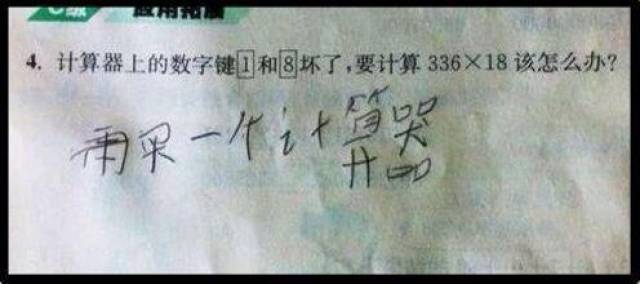 C级 应用拓展
4. 计算器上的数字键1和8坏了,要计算 336×18 该怎么办?
再买一个计算器